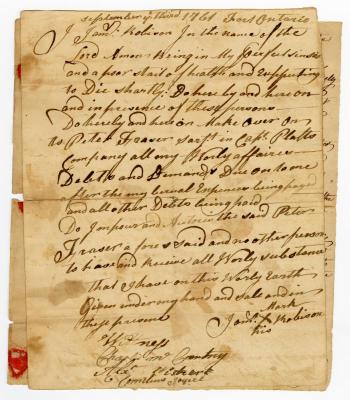 september yᵉ third 1761 Fort Ontario
I Jamˢ Robison In the name of the
Lord Amen Being in My Perfect Sinses
and a poor State of health and Expecting
to Die Shortly Do hereby and here on
and in presence of these persons
Do hereby and here on Make over on
to Peter Fraser sarjᵗ in Capᵗ
Company all my Worly affaires
Debtes and Demands Due on to me
after the my Being payed
and all other Debts being paid
Do Impour and the said Peter
Fraser afore said and no other person
to have and Receive all Worly substance
that I have on this Worly Earth
Given under my hand and Sale and in
these presents
Mark
Jamˢ X Robison
his
Witness
Mᶜ
Cornelius